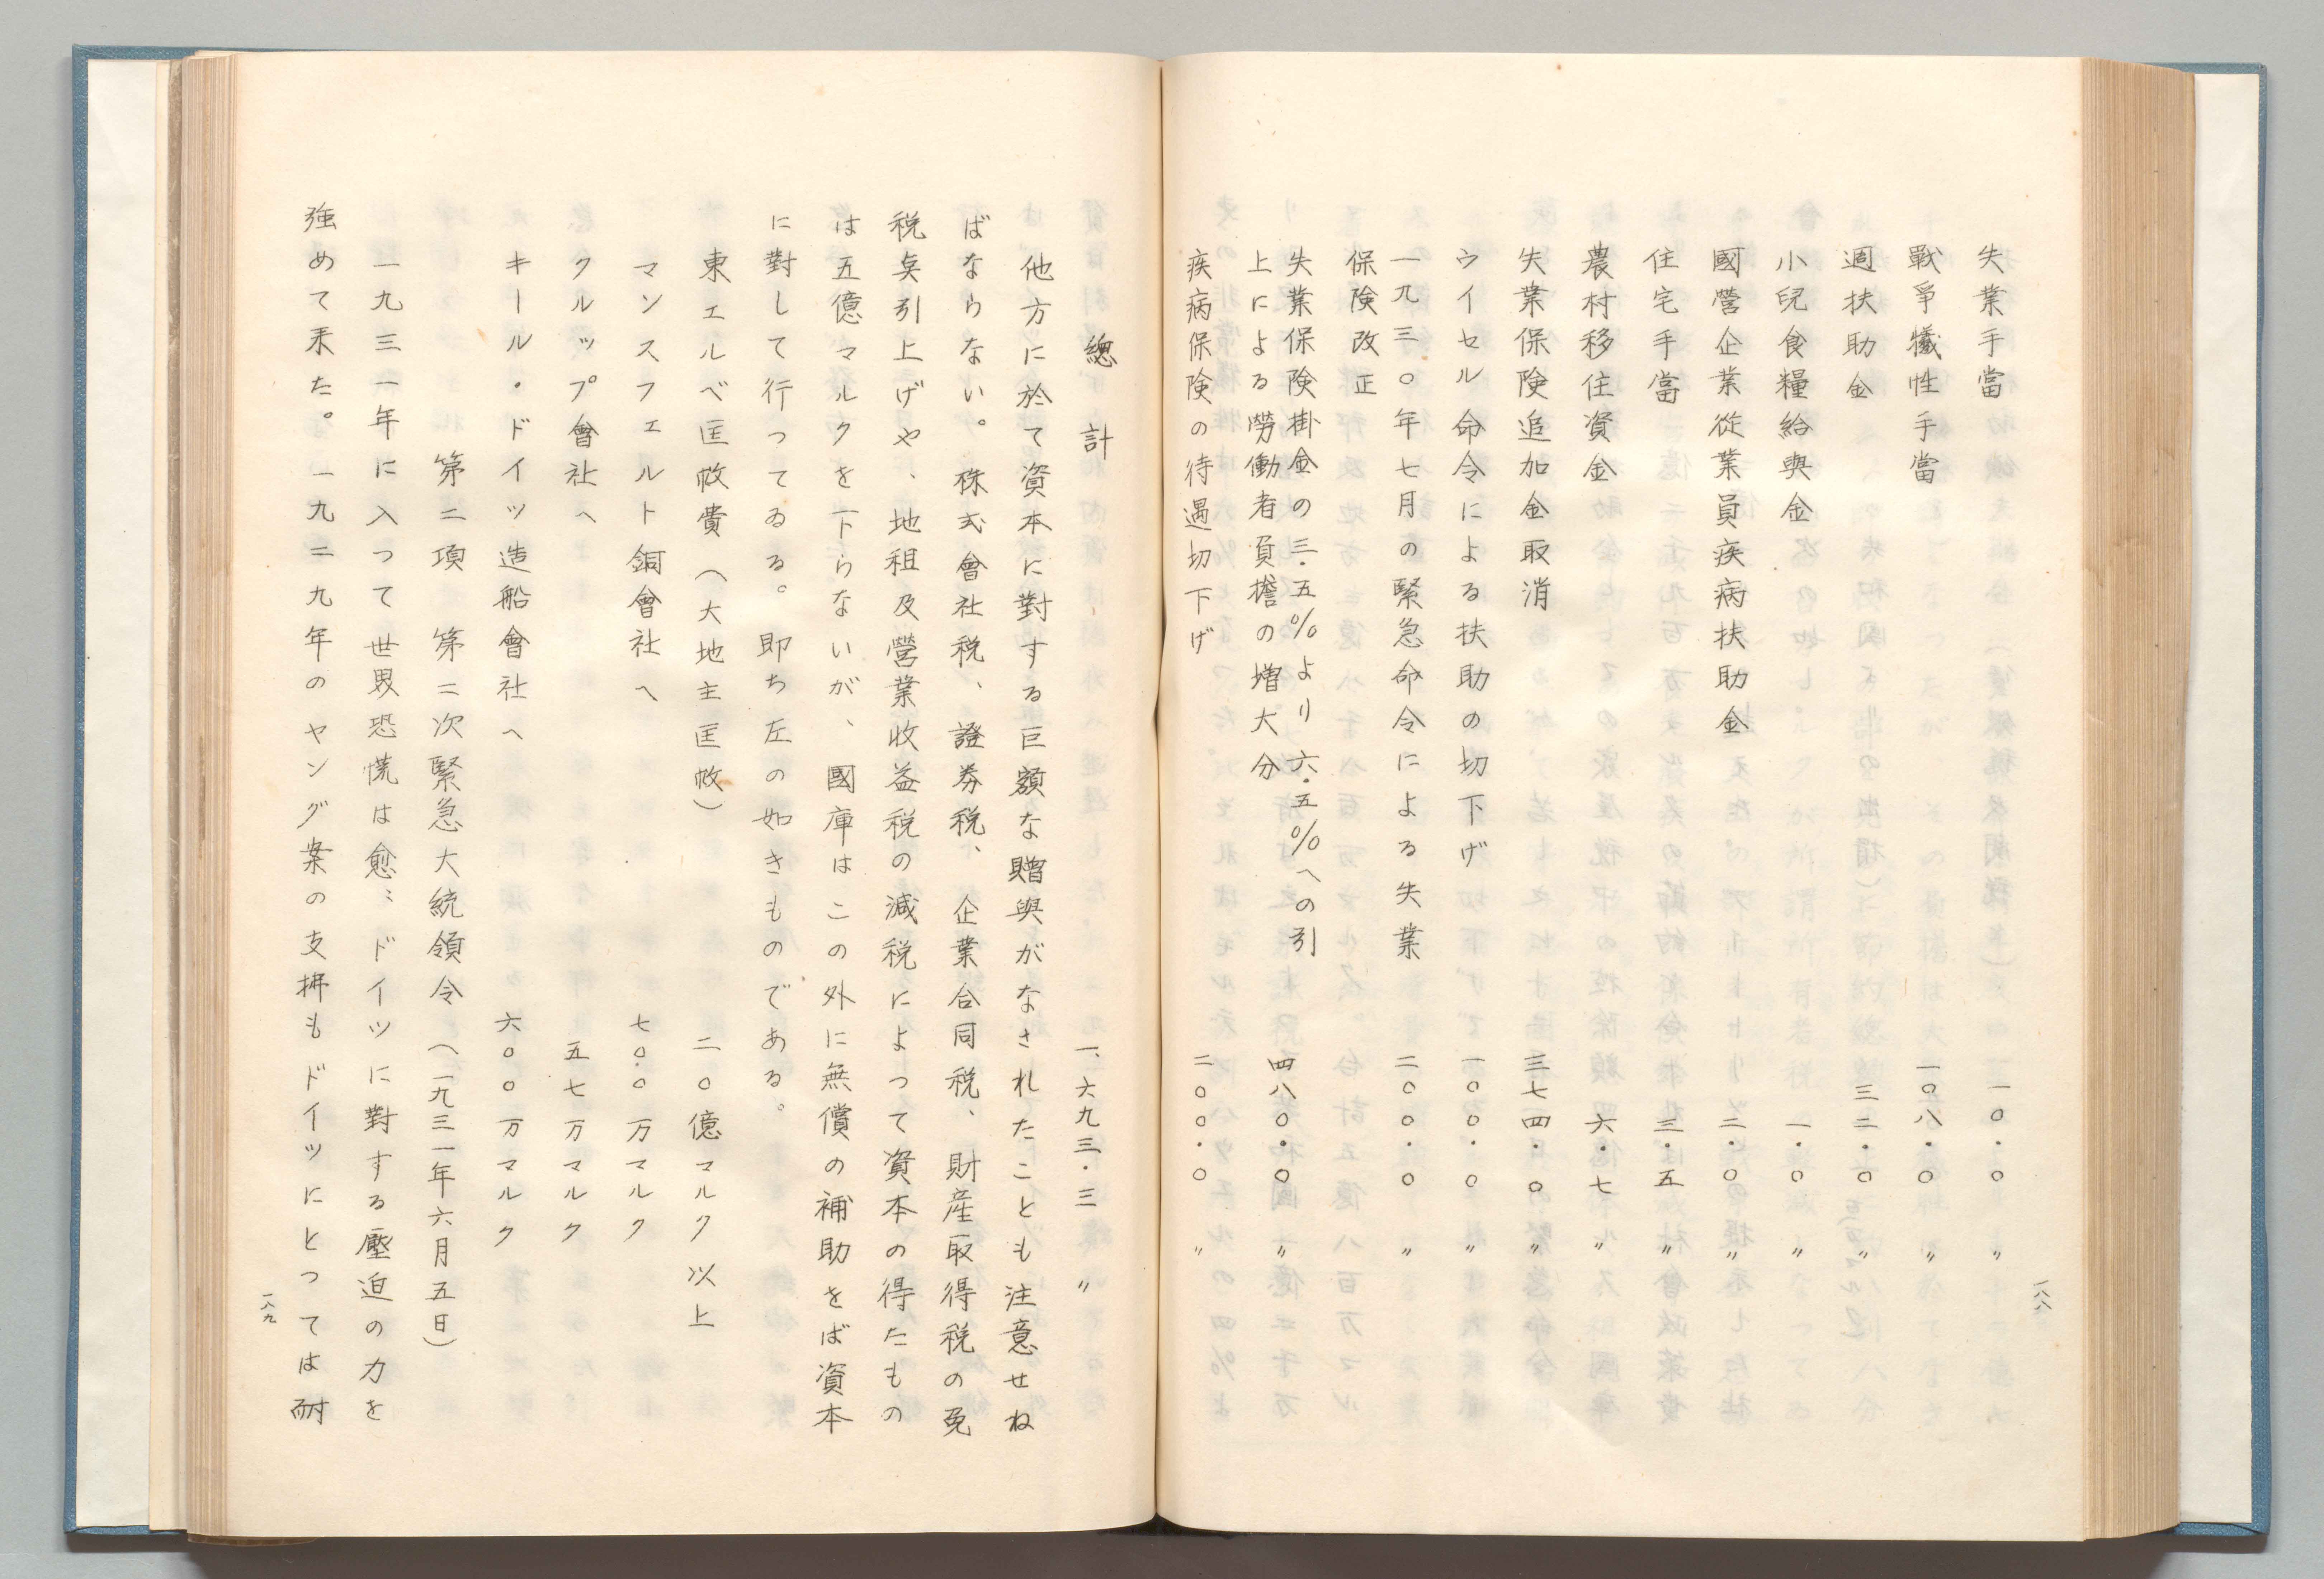 失業手當 一〇・〇 〃
戰爭犠性手當 一〇八・〇 〃
週扶助金 三二・〇 〃
小兒食糧給與金 一・〇 〃
國營企業從業員疾病扶助金 二・〇 〃
住宅手當 三・五 〃
農村移住資金 六・七 〃
失業保険追加金取消 三七四・〇 〃
ウイセル命令による扶助の切下げ 一〇〇・〇 〃
一九三〇年七月の緊急命令による失業
保険改正 二〇〇・〇 〃
失業保険掛金の三・五％より六・五％への引
上による勞働者負擔の増大分 四八〇・〇 〃
疾病保険の待遇切下げ 二〇〇・〇 〃
一八八
總計 一、六九三・三 〃
他方に於て資本に對する巨額な贈與がなされたことも注意せね
ばならない。株式會社税、證券税、企業合同税、財産取得税の免
税矣引上げや、地租及營業收益税の減税によって資本の得たもの
は五億マルクを下らないが、國庫はこの外に無償の補助をば資本
に對して行ってゐる。即ち左の如きものである。
東エルベ匡救費（大地主匡救） 二〇億マルク以上
マンスフェルト銅會社へ 七〇〇万マルク
クルップ會社へ 五七万マルク
キール・ドイツ造船會社へ 六〇〇万マルク
第二項 第二次緊急大統領令（一九三一年六月五日）
一九三一年に入って世界恐慌は愈〻ドイツに對する壓迫の力を
強めて来た。一九二九年のヤング案の支拂もドイツにとっては耐
一八九